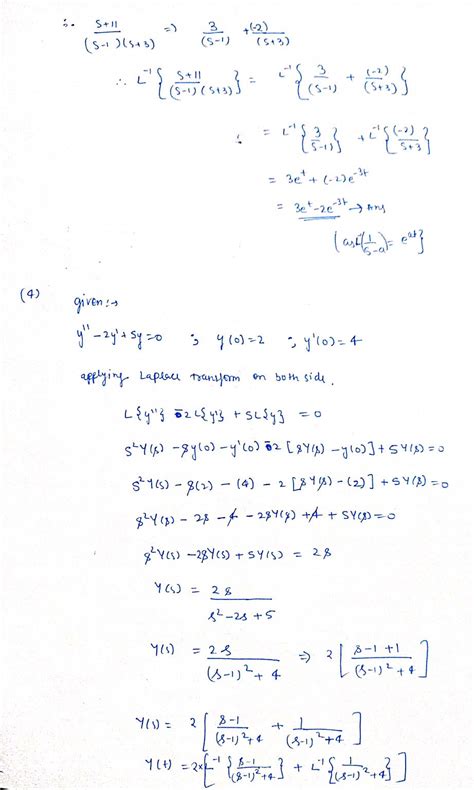 ∴ s+11/(s-1)(s+3) => 3/(s-1) + (-2)/(s+3)
∴ L⁻¹{ s+11/(s-1)(s+3) } = L⁻¹{ 3/(s-1) + (-2)/(s+3) }
= L⁻¹{ 3/(s-1) } + L⁻¹{ (-2)/s+3 }
= 3eᵗ + (-2)e⁻³ᵗ
= 3eᵗ - 2e⁻³ᵗ → Ans
(4) given :→
y'' - 2y' + 5y = 0 ; y(0) = 2 ; y'(0) = 4
applying Laplace transform on both side.
L{y''} - 2L{y'} + 5L{y} = 0
s²Y(s) - sy(0) - y'(0) - 2[sY(s) - y(0)] + 5Y(s) = 0
s²Y(s) - s(2) - (4) - 2[sY(s) - (2)] + 5Y(s) = 0
s²Y(s) - 2s - 4 - 2sY(s) + 4 + 5Y(s) = 0
s²Y(s) - 2sY(s) + 5Y(s) = 2s
Y(s) = 2s/s² - 2s + 5
Y(s) = 2s/(s-1)² + 4 => 2[ s-1+1/(s-1)² + 4 ]
Y(s) = 2[ s-1/(s-1)² + 4 + 1/(s-1)² + 4 ]
Y(t) = 2×[ L⁻¹{ s-1/(s-1)² + 4 } + L⁻¹{ 1/(s-1)² + 4 } ]